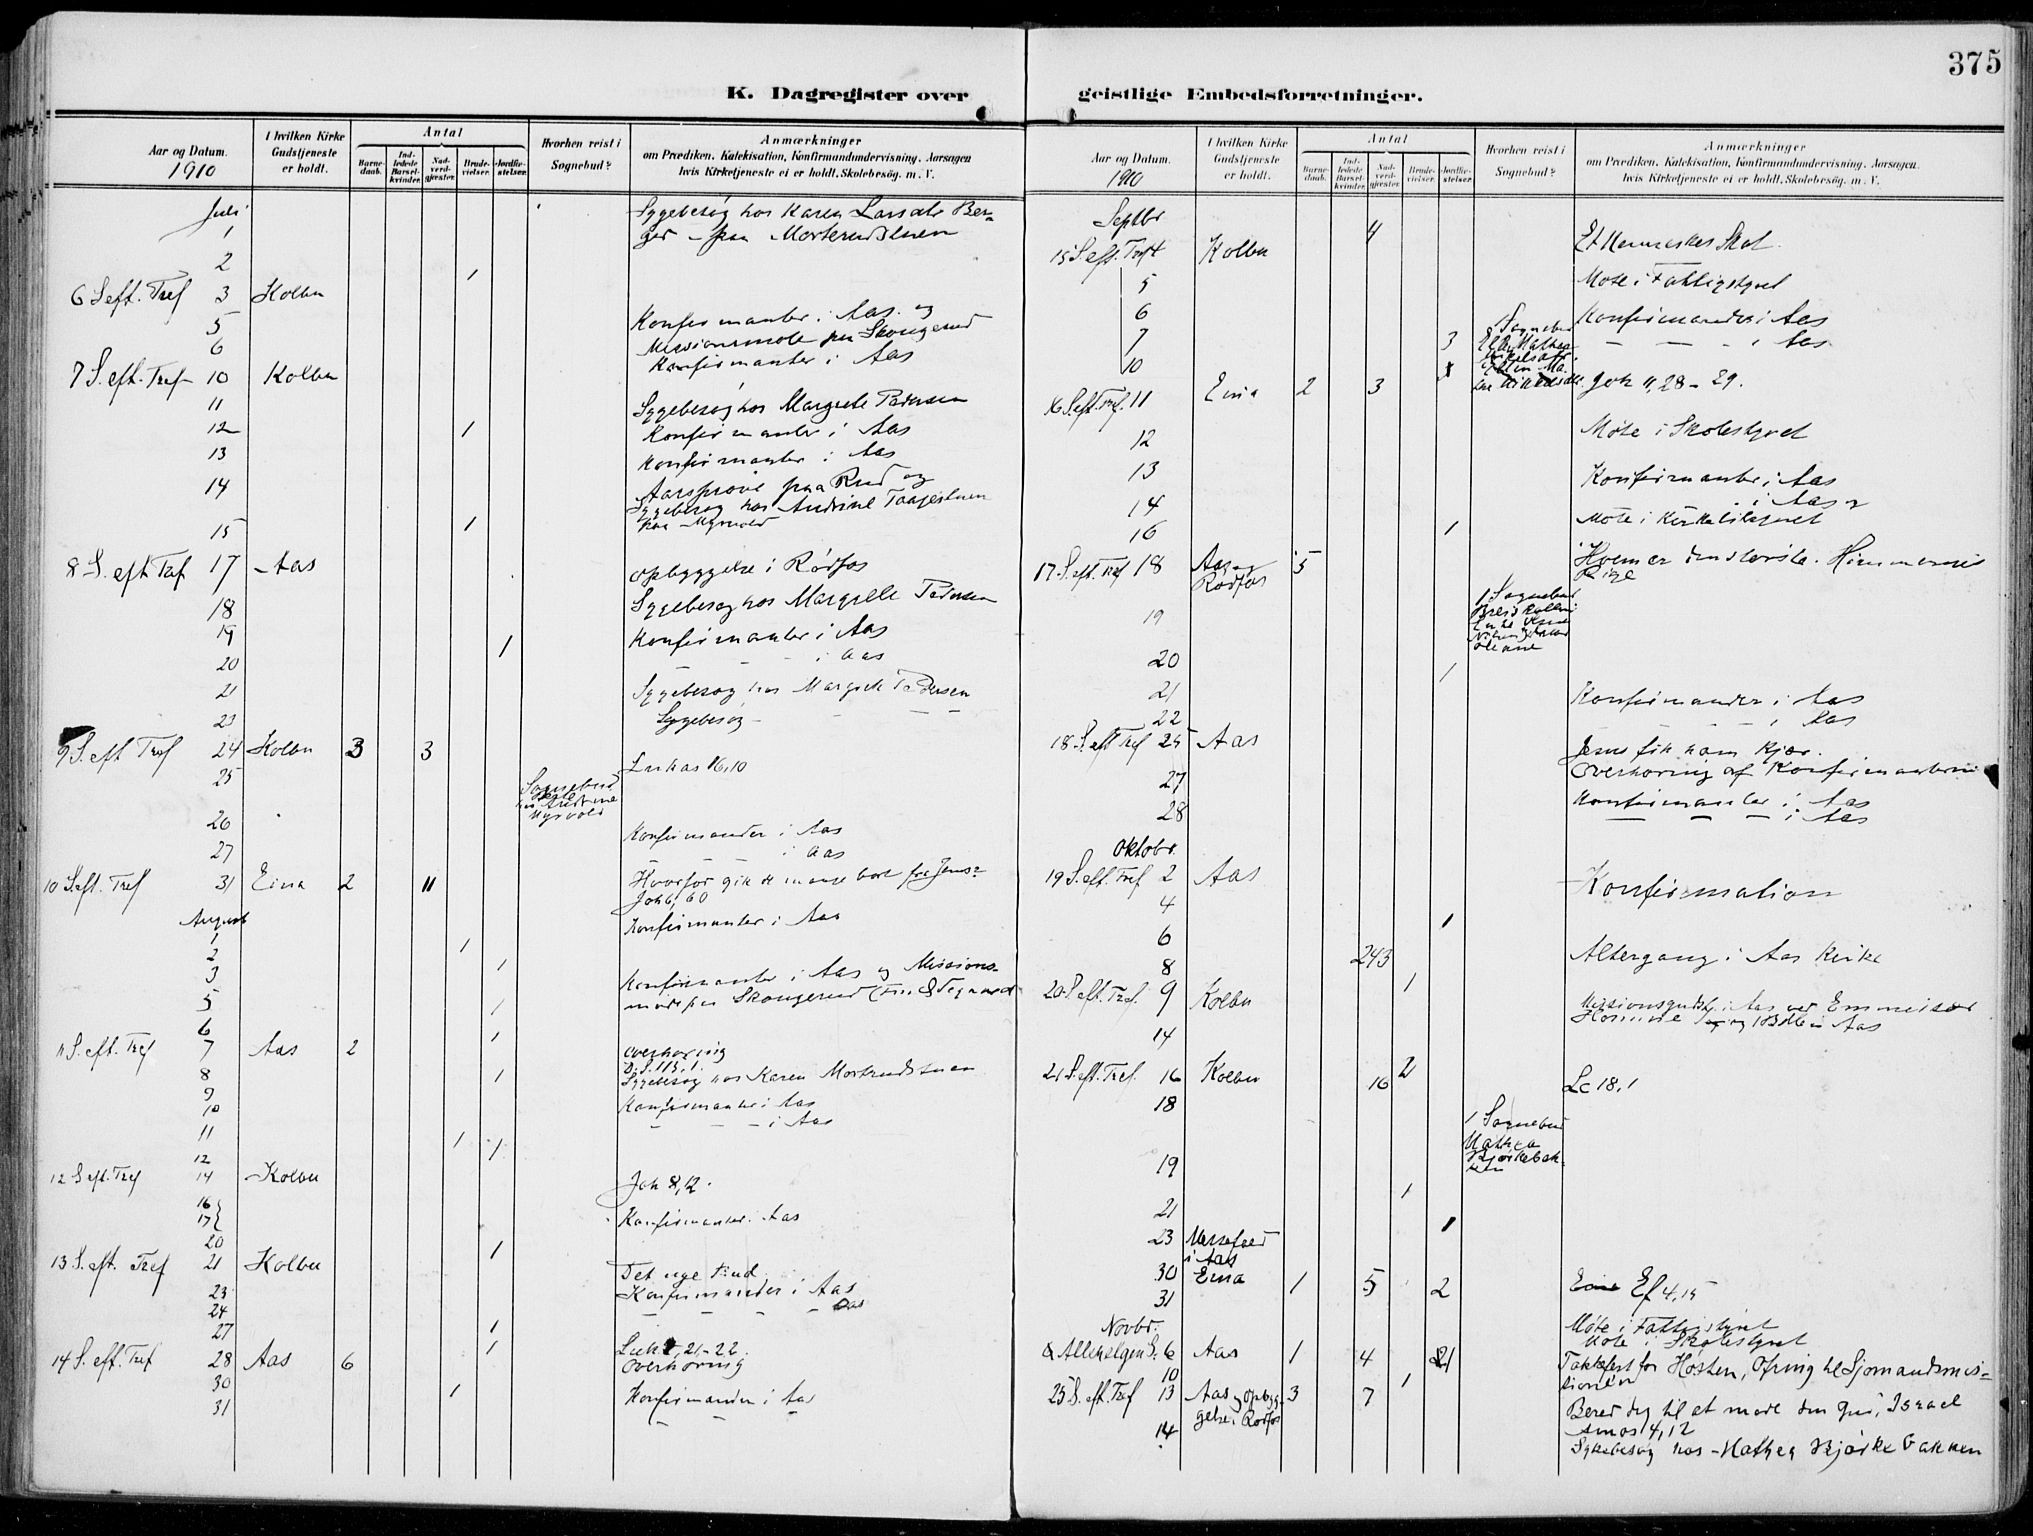 375
K. Dagregister over
geistlige Embedsforretninger.
Aar og Datum.
1910
I hvilken Kirke
Gudstjeneste
er holdt.
Antal
Barne-
daab.
Ind-
ledede
Barsel-
kvinder.
Nad-
verd-
gjester.
Brude-
vielser.
Jordfæ-
stelser.
Hvorhen reist i
Sognebud?
Anmærkninger
om Prædiken, Katekisation, Konfirmandundervisning, Aarsagen
hvis Kirketjeneste ei er holdt, Skolebesøg, m. V.
Juli
1 Sygebesøg hos Karen
paa
2 1
6 S eft. Tref 3 Kolbu
5 Konfirmanter i Aas og
Missionsmøte paa Skougerud
6 Konfirmanter i Aas
7 S. eft. Tref 10 Kolbu
11 Sygebesøg hos Margrete Pedersen
12 1 Konfirmanter i Aas
13 Konfirmanter i Aas
14 Aarsprøve paa Rud og
Sygebesøg hos Andrine
15 1
8 S. eft Tref 17 Aas Opbyggelse i Rødfos
18 Sygebesøg hos Margrete Pedersen
19 Konfirmanter i Aas
20 1 i Aas
21 Sygebesøg hos Margrete Pedersen
23 Sygebesøg - - -
9 S. eft Tref 24 Kolbu 3 3 Lukas 16,10
25 Sognebud
hos Andrine
26 Konfirmander i Aas
27 i Aas
10 S. eft. Tref 31 Eina 2 11 Hvorfor gik de mange bort fra Jesus?
Joh 6, 60
August
1 Konfirmanter i Aas
2 1
3 1 Konfirmanter i Aas og Missions-
møte paa Skougerud
5 1
6 1
11 S. eft. Tref 7 Aas 2 Overhøring
8 1 Sygebesøg hos Karen
9 Konfirmanter i Aas
10 - - - i Aas
11 1 1
12
12 S eft. Tref 14 Kolbu Joh 8,12.
16
17 Konfirmanter i Aas
20 1
13 S. eft. Tref 21 Kolbu Det nye Bud
23 Konfirmander i Aas
24 - - - Aas
27 1
14 S. eft. Tref 28 Aas 6 1 21-22.
Overhøring
30 1 Konfirmander i Aas
31 - - -
Aar og Datum.
1910
I hvilken Kirke
Gudstjeneste
er holdt.
Antal
Barne-
daab.
Ind-
ledede
Barsel-
kvinder.
Nad-
verd-
gjester.
Brude-
vielser.
Jordfæ-
stelser.
Hvorhen reist i
Sognebud?
Anmærkninger
om Prædiken, Katekisation, Konfirmandundervisning, Aarsagen
hvis Kirketjeneste ei er holdt, Skolebesøg, m. V.
Septbr
15 S. eft. Tref 4 Kolbu 4 Et Menneskes Skat.
5 Møte i Fattigstyret
6 Konfirmander i Aas
7 3 Sognebud - - - i Aas
10
16 S. eft. Tref. 11 Eina 2 3 Joh 11, 28-29.
12 Møte i Skolestyret
13 Konfirmanter i Aas
14 i Aas
16 1 Møte i Kirketilsynet
17 S. eft. Tref 18 Aas og
Rødfos 5 Hvem er den største i Himmeriges
Rige
19 1 Sognebud
20
21 1 Konfirmander i Aas
22 - - - i Aas
18 S. eft Tref 25 Aas Jesus fik ham kjær.
Overhøring af Konfirmanterne
27 Konfirmanter i Aas
28 - - - i Aas
Oktobr.
19 S. eft. Tref 2 Aas Konfirmation
4
6 1
8 243 Altergang i Aas Kirke
20 S. eft. Tref. 9 Kolbu 1 Missionsgudstj. i Aas ved Emmissær
i Aas
14
21 S. eft. Tref. 16 Kolbu 16 2 Lc 18,1
18 1 Sognebud
Mathea
Bjørkebak-
ken
19
21 1
23 Messefald
i Aas 1
30 Eina 1 5 2 Ef 4,15
31 Møte i Fattigstyret
Novbr. Møte i Skolestyret
Allehelgen S. 6 Aas 1 4 21 Takkefest for Høsten, Ofring til Sjømandsmis-
sionen
10 1
25 S. eft. Tref 13 Aas og Opbyg-
gelse i Rødfos 3 7 Bered dig til at møde din Gud, Israel
Amos 4,12
14 Sykebesøg hos Mathea Bjørkebakken